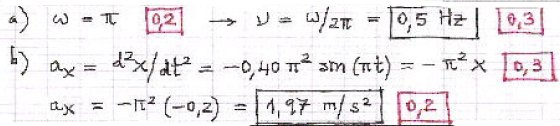 a) ω = π 0,2 → ν = ω/2π = 0,5 Hz 0,3
b) aₓ = d²x/dt² = -0,40 π² sm (πt) = -π² x 0,3
aₓ = -π² (-0,2) = 1,97 m/s² 0,2